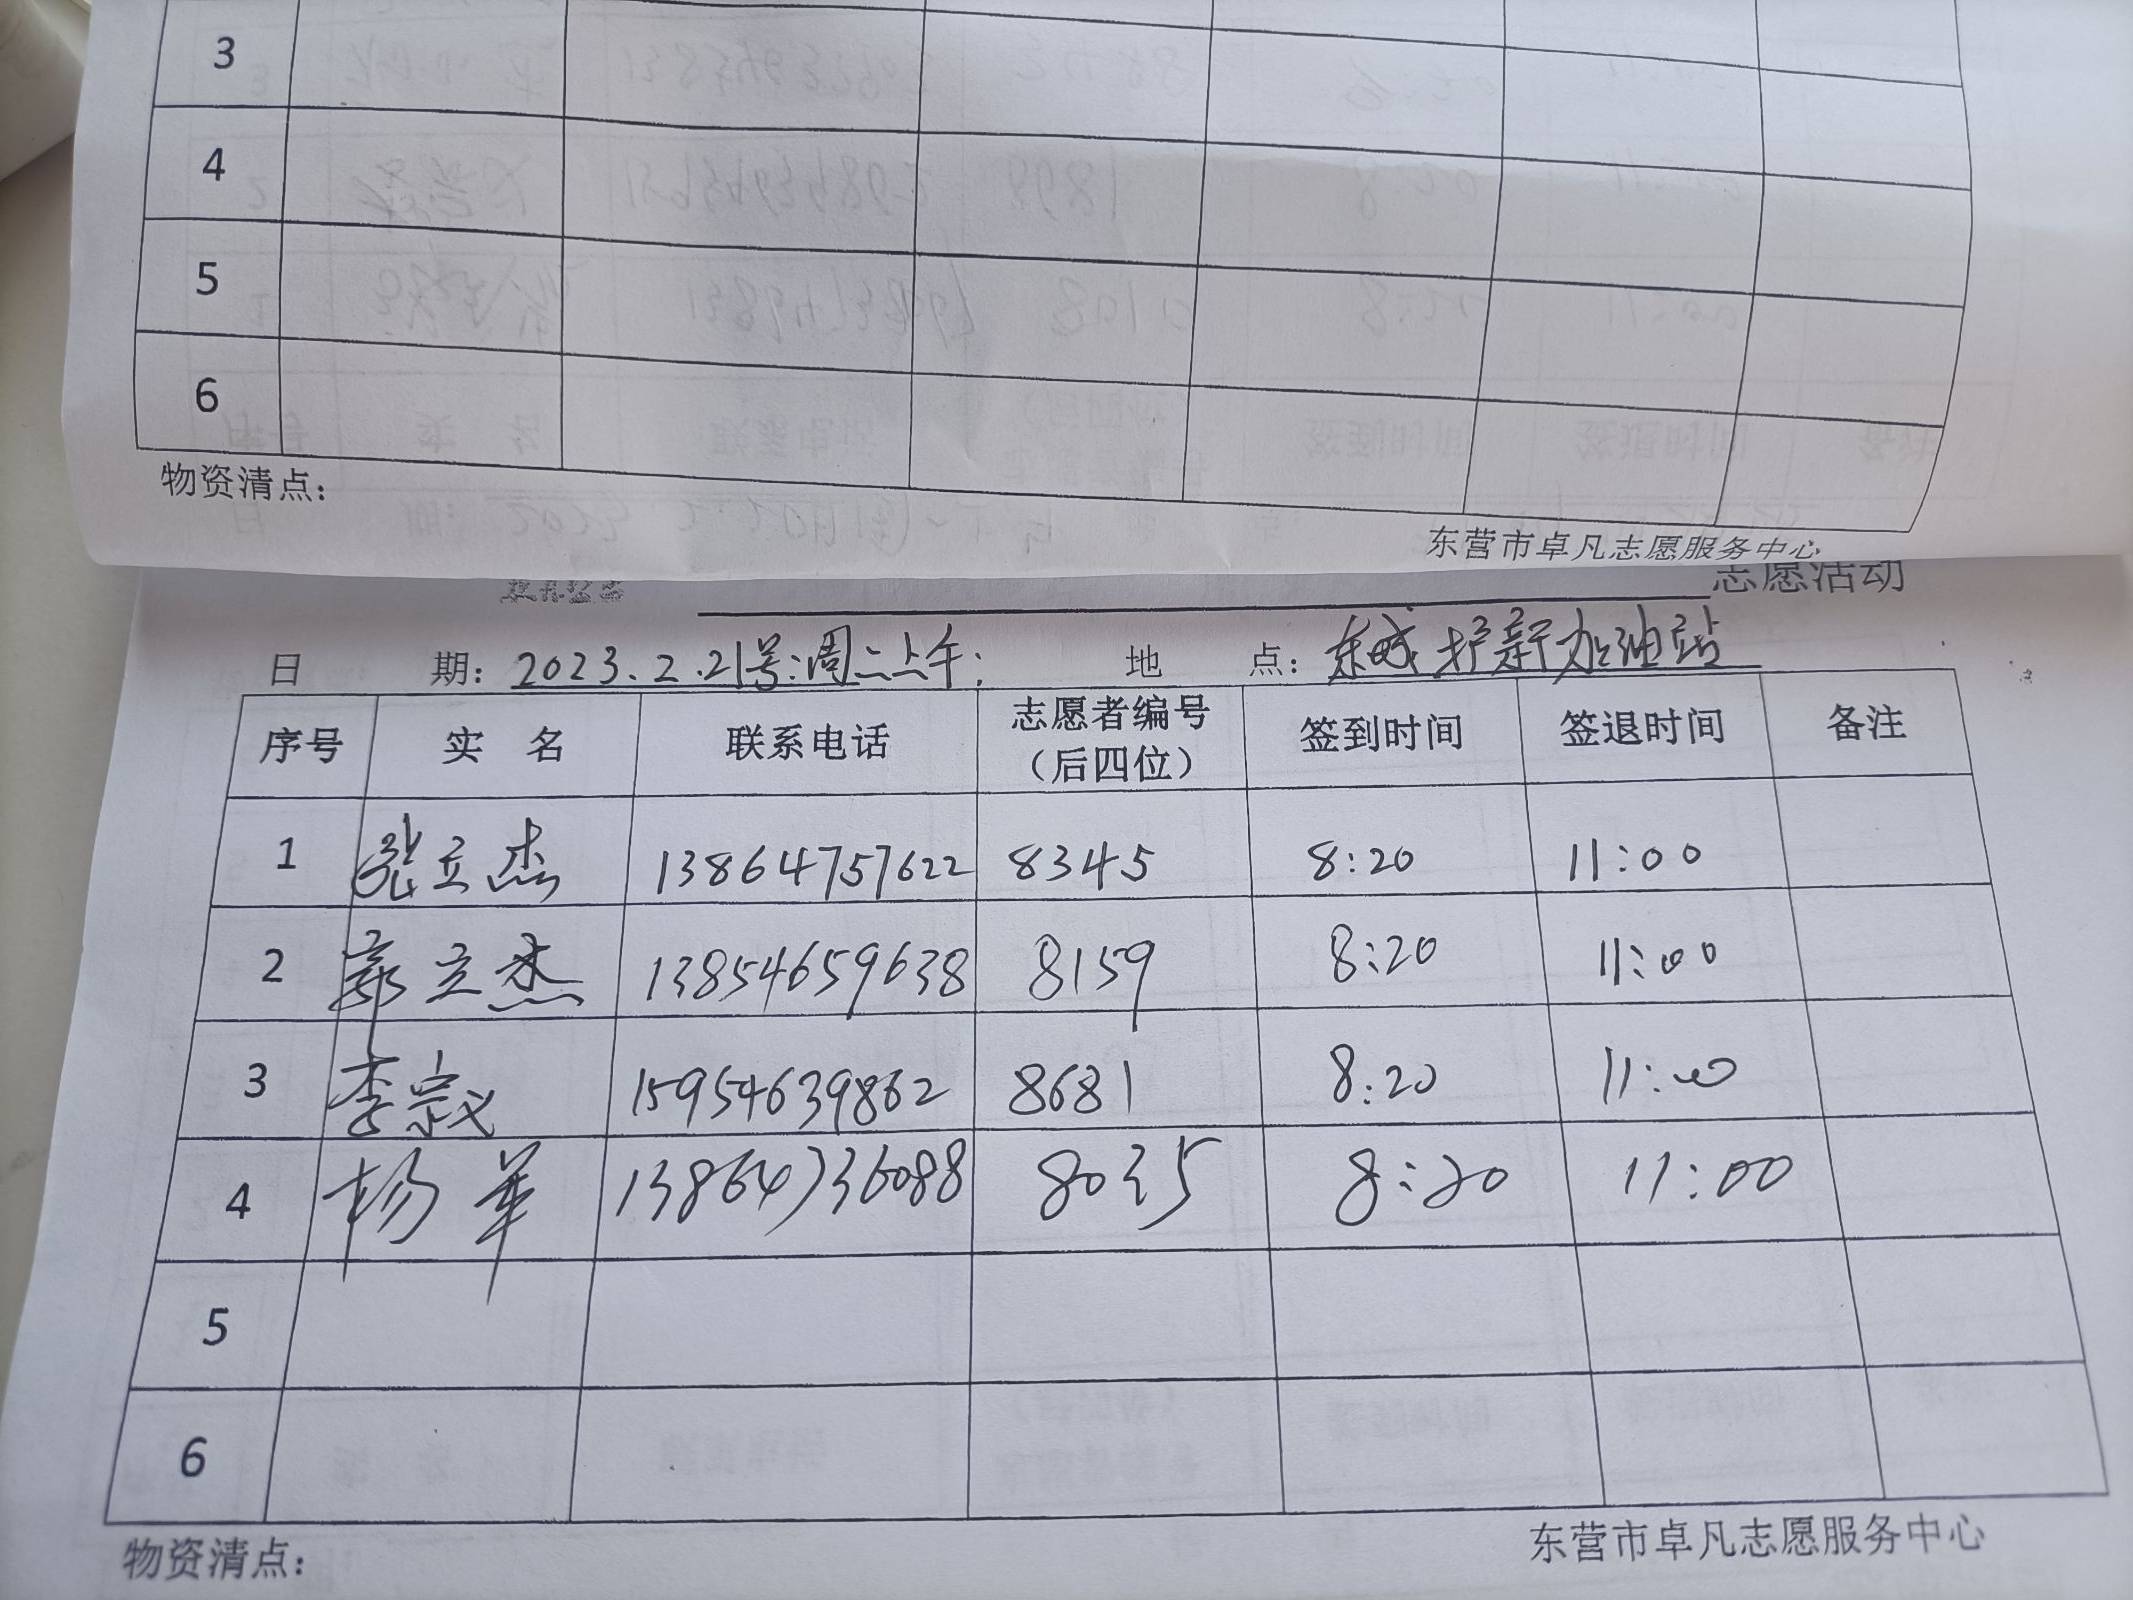 3
4
5
6
物资清点：
东营市卓凡志愿服务中心
志愿活动
日 期：2023.2.21号:周二上午: 地 点：东城护新加油站
序号 实 名 联系电话 志愿者编号（后四位） 签到时间 签退时间 备注
1 张立杰 13864757622 8345 8:20 11:00
2 郭立杰 13854659638 8159 8:20 11:00
3 李宗义 15954639862 8681 8:20 11:00
4 杨华 13864736088 8035 8:20 11:00
5
6
物资清点：
东营市卓凡志愿服务中心